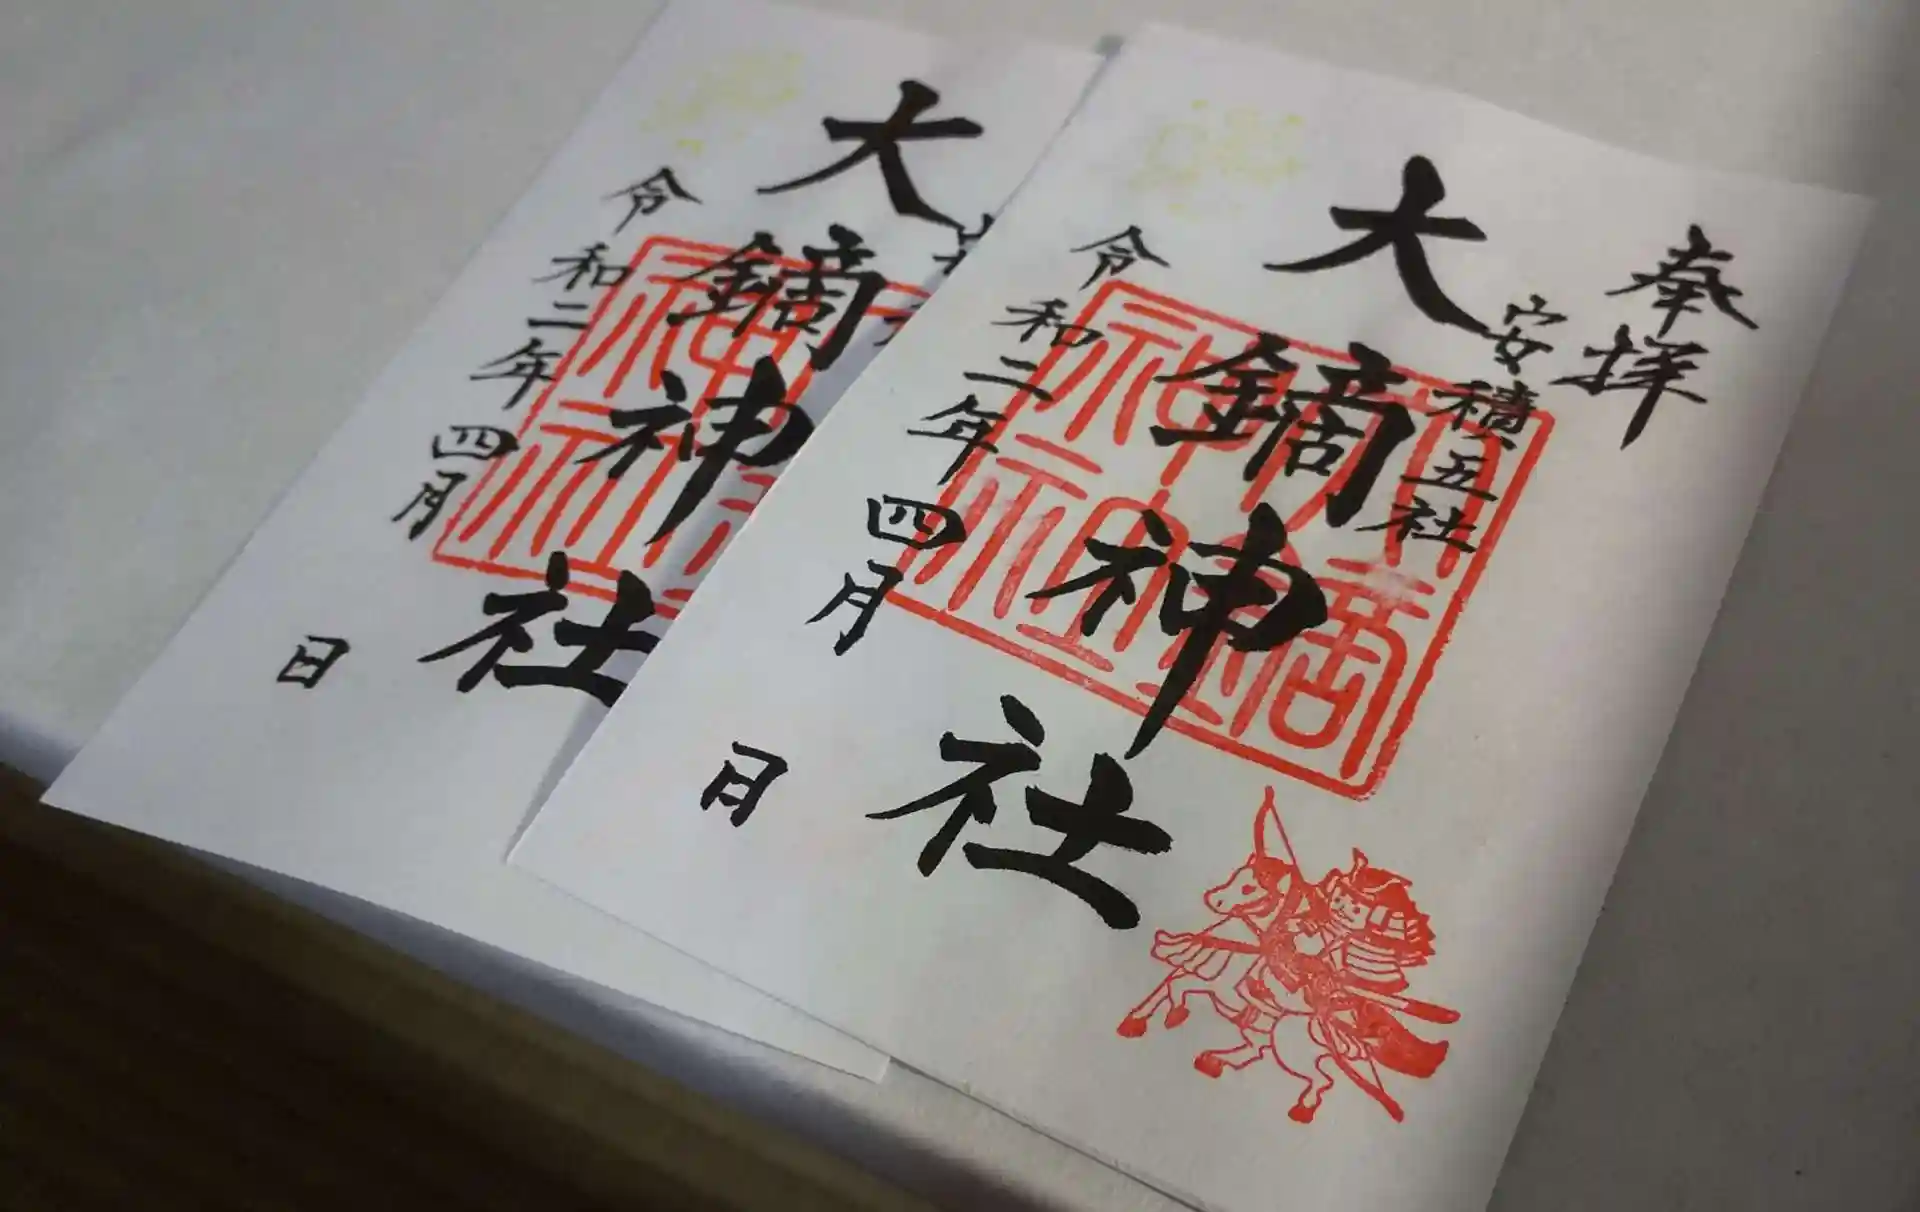 奉拝
安積五社
大鏑神社
令和二年四月 日
大鏑神社
令和二年四月 日